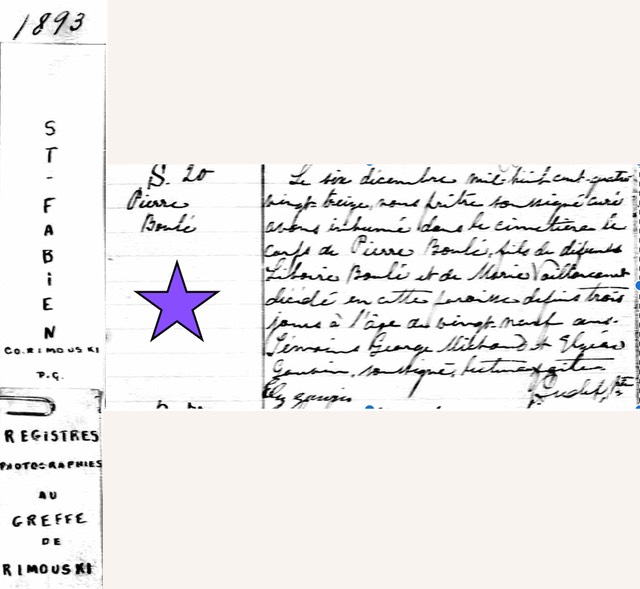 1893
ST-FABIEN
CO. RIMOUSKI
P.Q.
REGISTRES
PHOTOGRAPHIES
AU
GREFFE
DE
RIMOUSKI
S. 20
Pierre
Boulé
Le six décembre mil huit cent quatre
vingt treize, nous prêtre soussigné curé
avons inhumé dans le cimetière le
corps de Pierre Boulé, fils de défunts
Liboire Boulé et de Marie Vaillancourt
décédé en cette paroisse depuis trois
jours à l'âge de vingt neuf ans.
Témoins George Michaud et Elzéar
Gauvin, soussigné, lecture faite
Elz Gauvin